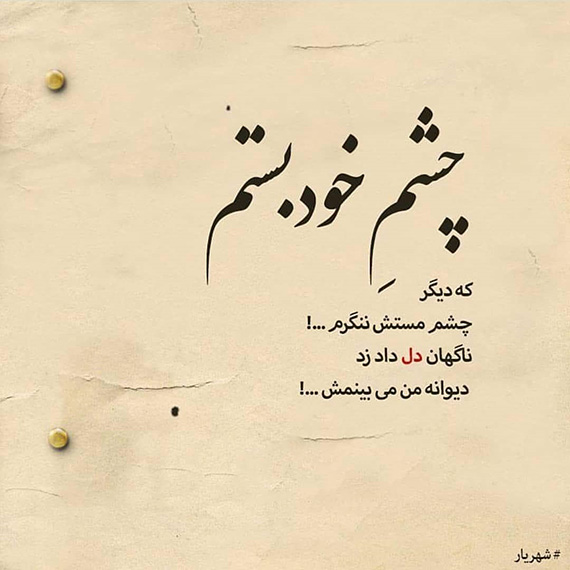 چشمِ خود بستم
که دیگر
چشم مستش ننگرم ...!
ناگهان دل داد زد
دیوانه من می بینمش ...!
#شهریار